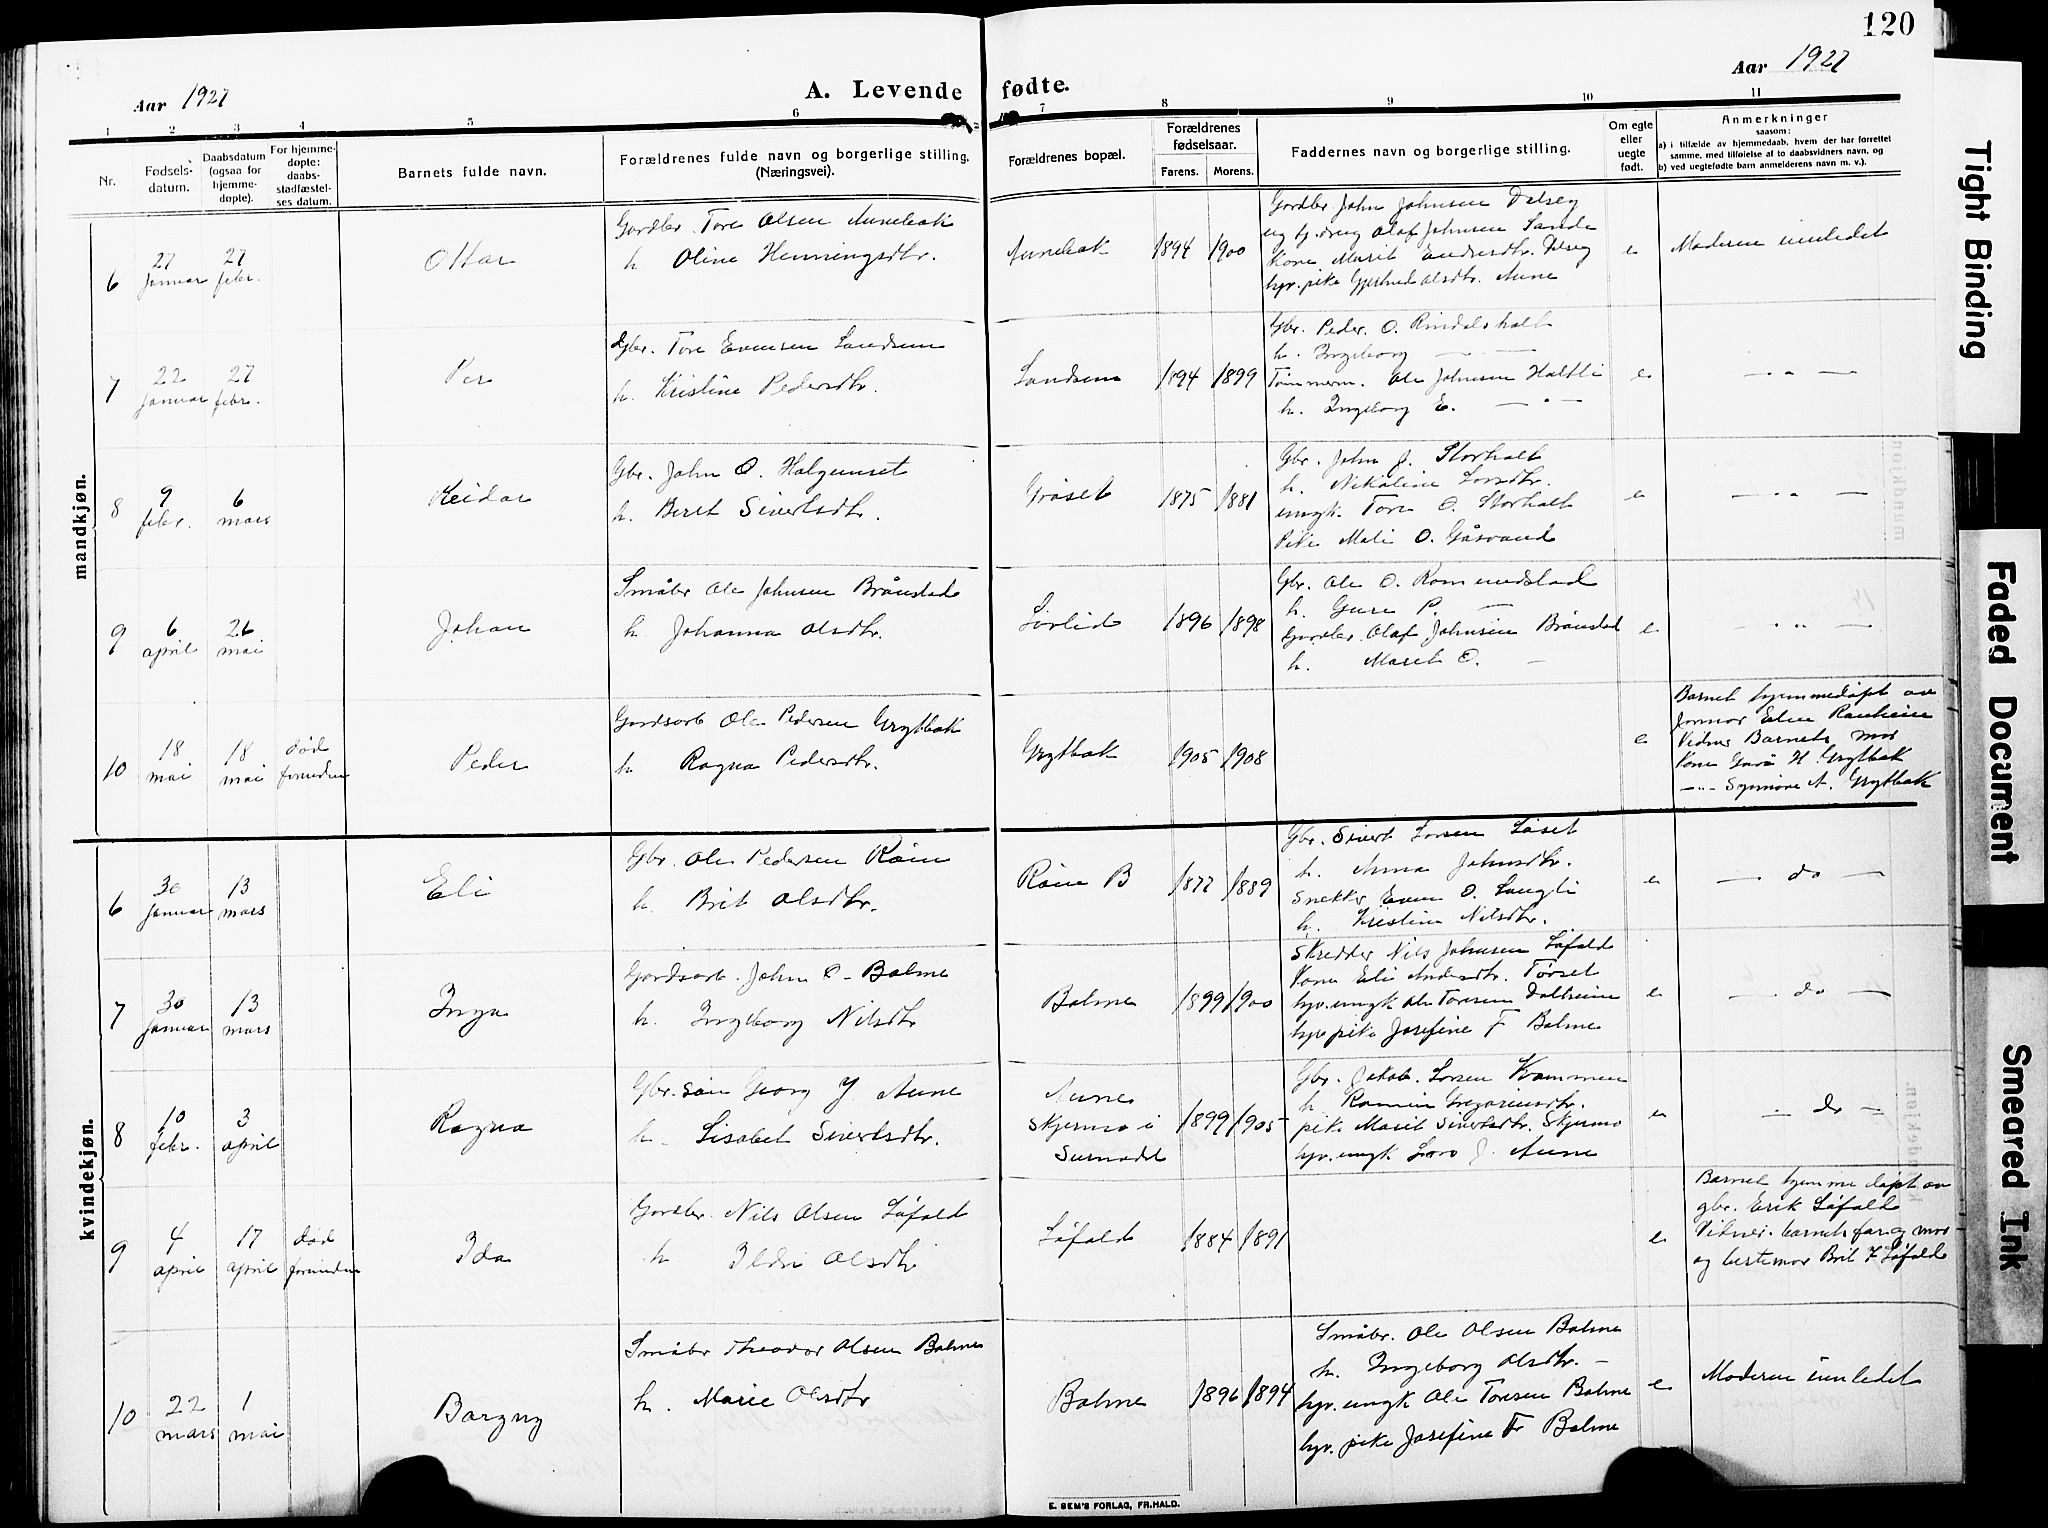 120
Aar 1927
A. Levende fødte.
Aar 1927
1 2 3 4 5 6 7 8 9 10 11
Nr.
Fødsels-
datum.
Daabsdatum
(ogsaa for
hjemme-
døpte).
For hjemme-
døpte:
daabs-
stadfæstel-
ses datum.
Barnets fulde navn.
Forældrenes fulde navn og borgerlige stilling.
(Næringsvei).
Forældrenes bopæl.
Forældrenes
fødselsaar.
Farens. Morens.
Faddernes navn og borgerlige stilling.
Om egte
eller
uegte
født.
Anmerkninger
saasom:
a) i tilfælde av hjemmedaab, hvem der har forrettet
samme, med tilføielse af to daabsvidners navn, og
b) ved uegtefødte barn anmelderens navn m. v.).
mandkjøn.
6
27
januar
27
febr.
Ottar
Gardbr. Tore Olsen Aunebak
h. Oline Henningsdtr.
Aunebak
1894 1900
Gardbr. John Johnsen Dalseg
Olaf Johnsen Sande
Kone Marit
hjv. pike Gjertrud Olsdtr. Aune
e
Moderen innledet
7
22
januar
27
febr.
Per
Gbr. Tore Evensen Landsem
h. Kristine Pedersdtr.
Landsem
1894 1899
Gbr. Peder O. Rindalsholt
h. Ingeborg — —
Tømmerm. Ole Johnsen Haltli
h. Ingeborg E. — " —
e
— " —
8
9
febr.
6
mars
Reidar
Gbr. John O. Halgunset
h. Beret Sivertsdtr.
Grøset
1875 1881
Gbr. John J. Storholt
h. Nikoline Larsdtr.
ungk. Tore O. Storholt
Pike Mali O. Gåsvand
e
— " —
9
6
april
26
mai
Johan
Småbr Ole Johnsen Brånstad
h. Johanna Olsdtr.
Løvlid
1896 1898
Gbr. Ole O. Romundstad
h. Guru P. —
Gardbr. Olaf Johnsen Brånstad
h. Marit O. —
e
— " —
10
18
mai
18
mai
død
forinden
Peder
Gardsarb Ole Pedersen Grytbak
h. Ragna Pedersdtr.
Grytbak
1905 1908
e
Barnet hjemmedøpt av
farmor Elen Ranheim
Vidner Barnets mor
Kone H. Grytbak
— " — Synnøve A. Grytbak
kvindekjøn.
6
30
januar
13
mars
Eli
Gbr. Ole Pedersen Røen
h. Brit Olsdtr.
Røen B
1877 1889
Gbr. Sivert Larsen Løset
h. Anna Johnsdtr.
Snekker Even O. Langli
h. Kristine Nilsdtr.
e
— do —
7
30
januar
13
mars
Inga
Gardsarb. John O. Bolme
h. Ingeborg Nilsdtr
Bolme
1899 1900
Skredder Nils Johnsen Løfald
Kone Eli Andersdtr. Tørset
hjv. ungk Ole Toresen Dalheim
hjv pike Josefine F Bolme
e
— do —
8
10
febr.
3
april
Ragna
Gbr. søn Georg J. Aune
h. Lisabet Sivertsdtr.
Aune
Skjermo i
Surnadal
1899 1905
Gbr. Jakob Larsen Kvammen
h.
pike Marit Sivertsdtr. Skjermo
hjv. ungk. Lars J. Aune
e
— do —
9
4
april
17
april
død
forinden
Ida
Gardbr. Nils Olsen Løfald
h. Ildri Olsdtr
Løfald
1884 1891
e
Barnet hjemme døpt av
gbr. Erik Løfald
Vidner: barnets far og mor
og bestemor Brit Løfald
10
22
mars
1
mai
Borgny
Småbr Theodor Olsen Bolme
h. Marie Olsdtr
Bolme
1896 1894
Småbr. Ole Olsen Bolme
h. Ingeborg Olsdtr. —
hjv. ungk Ole Toresen Bolme
hjv. pike Josefine F. Bolme
e
Moderen innledet
E. SEM'S FORLAG, FR.HALD.
Tight Binding
Faded Document
Smeared Ink